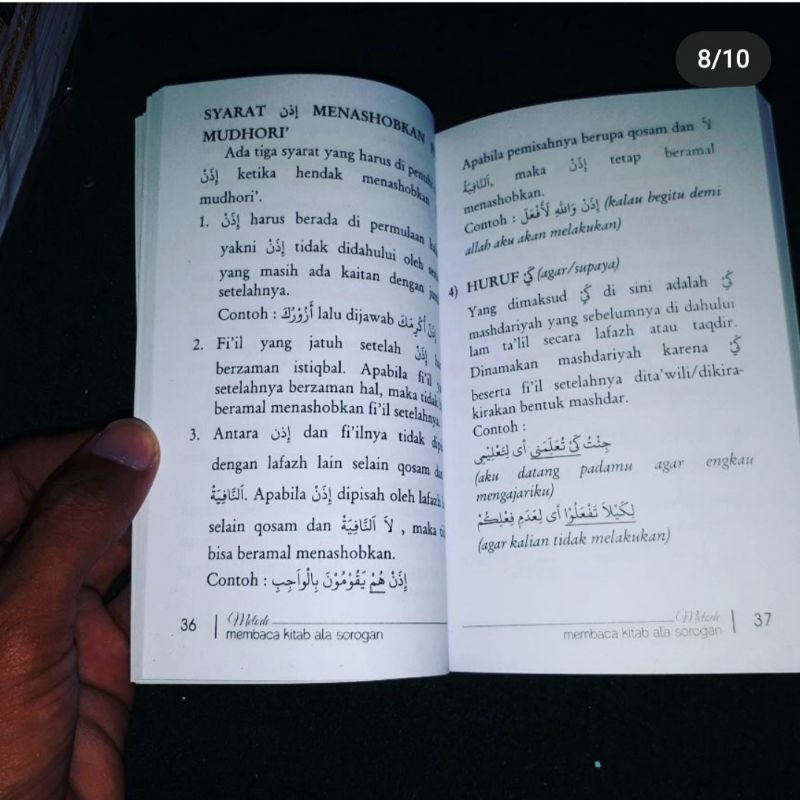 8/10
SYARAT إذن MENASHOBKAN
MUDHORI'
Ada tiga syarat yang harus di
إِذَنْ ketika hendak menashobkan
mudhori'.
1. إِذَنْ harus berada di permulaan
yakni إِذَنْ tidak didahului oleh
yang masih ada kaitan dengan
setelahnya.
Contoh : أَزُوْرُكَ lalu dijawab إِذَنْ أُكْرِمَكَ
2. Fi'il yang jatuh setelah إِذَنْ
berzaman istiqbal. Apabila fi'il
setelahnya berzaman hal, maka tidak
beramal menashobkan fi'il setelahnya.
3. Antara إذن dan fi'ilnya tidak
dengan lafazh lain selain qosam
اَلنَّافِيَةُ. Apabila إِذَنْ dipisah oleh lafazh
selain qosam dan لاَ اَلنَّافِيَةُ , maka
bisa beramal menashobkan.
Contoh : إِذَنْ هُمْ يَقُوْمُوْنَ بِالْوَاجِبِ
36 | Metode
membaca kitab ala sorogan
Apabila pemisahnya berupa qosam dan لاَ
اَلنَّافِيَةُ, maka إِذَنْ tetap beramal
menashobkan.
Contoh : إِذَنْ وَاللهِ لَأَفْعَلَ (kalau begitu demi
allah aku akan melakukan)
4) HURUF كَيْ (agar/supaya)
Yang dimaksud كَيْ di sini adalah كَيْ
mashdariyah yang sebelumnya di dahului
lam ta'lil secara lafazh atau taqdir.
Dinamakan mashdariyah karena كَيْ
beserta fi'il setelahnya dita'wili/dikira-
kirakan bentuk mashdar.
Contoh :
جِئْتُ كَيْ تُعَلِّمَنِي أى لِتَعْلِيْمِي
(aku datang padamu agar engkau
mengajariku)
لِكَيْلاَ تَفْعَلُوْا أى لِعَدَمِ فِعْلِكُمْ
(agar kalian tidak melakukan)
Metode | 37
membaca kitab ala sorogan